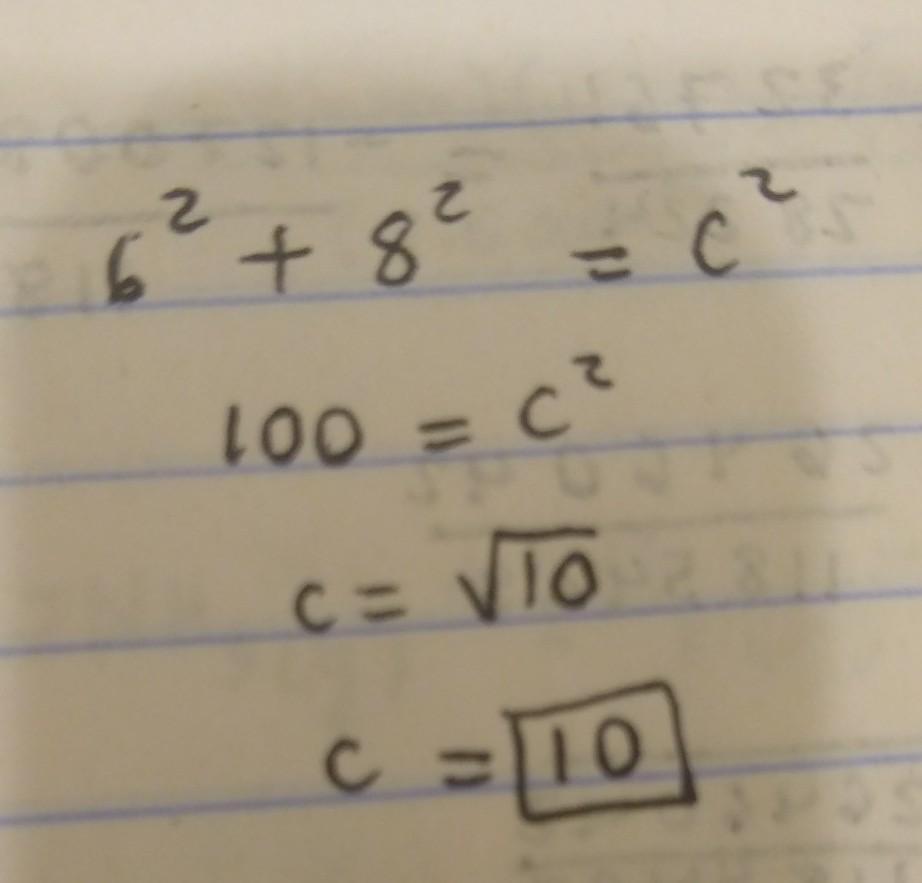 6² + 8² = c²
100 = c²
c = √10
c = 10